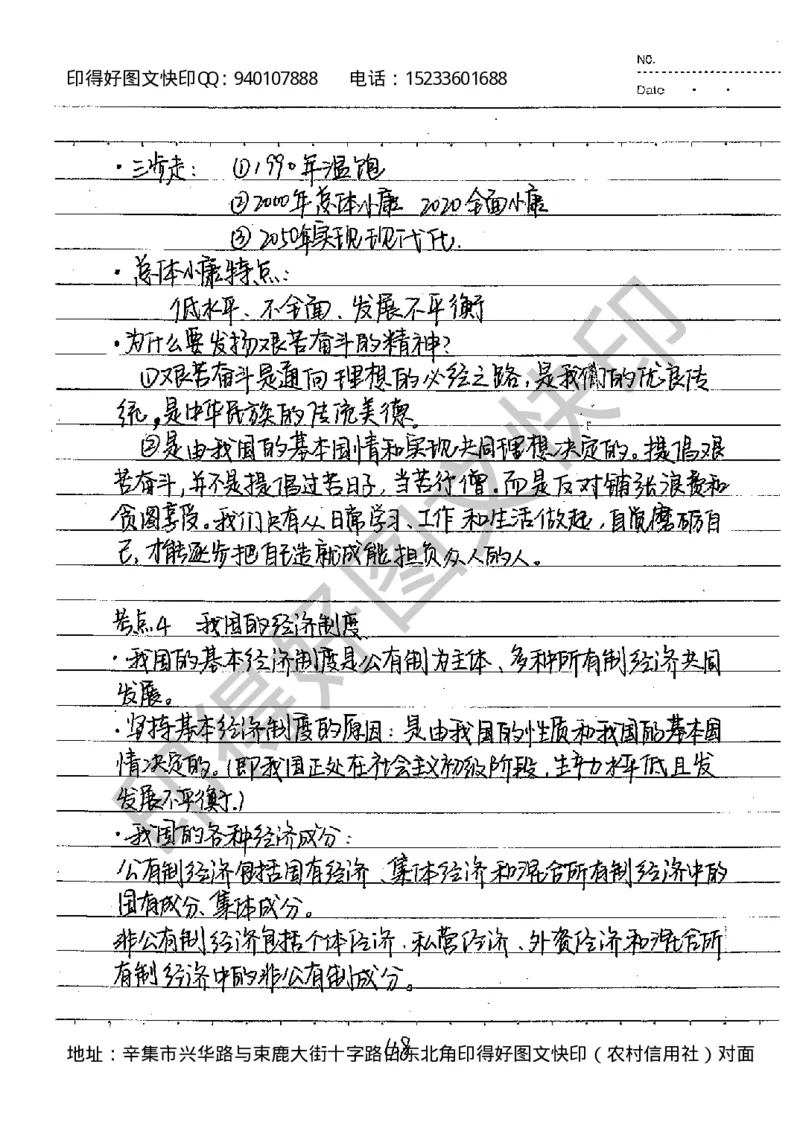 印得好图文快印QQ：940107888 电话：15233601688
NO.
Date
·三步走：①1990年温饱
②2000年总体小康 2020全面小康
③2050年实现现代化.
·总体小康特点：
低水平、不全面、发展不平衡
·为什么要发扬艰苦奋斗的精神？
①艰苦奋斗是通向理想的必经之路，是我们的优良传
统，是中华民族的传统美德。
②是由我国的基本国情和实现共同理想决定的。提倡艰
苦奋斗，并不是提倡过苦日子，当苦行僧.而是反对铺张浪费和
贪图享受。我们只有从日常学习、工作和生活做起，自觉磨砺自
己，才能逐步把自己造就成能担负众人的人。
考点4 我国的经济制度
·我国的基本经济制度是公有制为主体、多种所有制经济共同
发展。
·坚持基本经济制度的原因：是由我国的性质和我国的基本国
情决定的。（即我国正处在社会主义初级阶段，生产力水平低且发
发展不平衡.）
·我国的各种经济成分：
公有制经济包括国有经济、集体经济和混合所有制经济中的
国有成分、集体成分。
非公有制经济包括个体经济、私营经济、外资经济和混合所
有制经济中的非公有制成分。
48
地址：辛集市兴华路与束鹿大街十字路口东北角印得好图文快印（农村信用社）对面
印得好图文快印